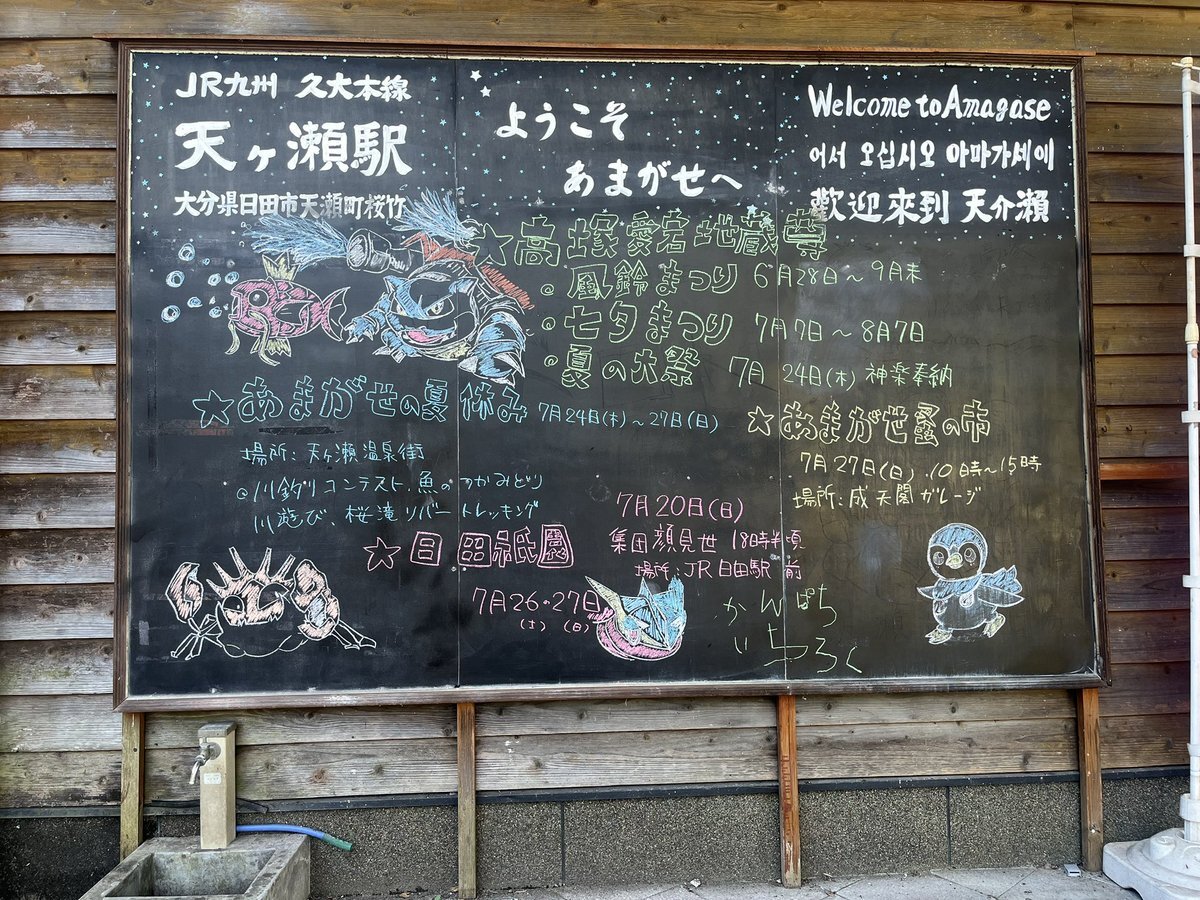 JR九州 久大本線
天ヶ瀬駅
大分県日田市天瀬町桜竹
ようこそ
あまがせへ
Welcome to Amagase
어서 오십시오 아마가세에
歡迎來到 天介瀬
★高塚愛宕地蔵尊
@風鈴まつり 6月28日～9月末
@七夕まつり 7月7日～8月7日
@夏の大祭 7月24日(木) 神楽奉納
☆あまがせの夏休み 7月24日(木)～27日(日)
場所:天ヶ瀬温泉街
@川釣りコンテスト、魚のつかみどり
川遊び、桜滝リバートレッキング
☆あまがせ蚤の市
7月27日(日) 10時～15時
場所:成天閣ガレージ
☆日田祇園
7月20日(日)
集団顔見世 18時半頃
場所:JR日田駅前
7月26・27日
(土) (日)
かんぱち
いちろく